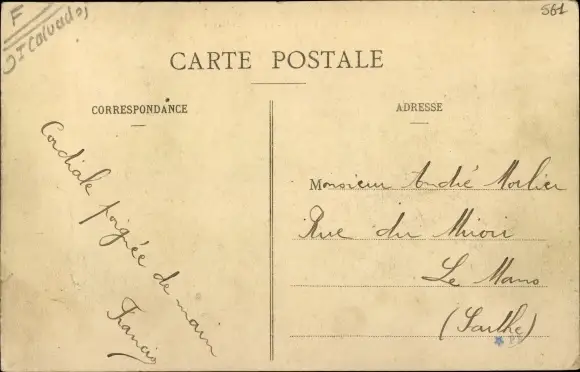 F
(Calvados)
561
CARTE POSTALE
CORRESPONDANCE
ADRESSE
Cordiale poignée de main
Francis
Monsieur André Morlier
Rue du Miroir
Le Mans
(Sarthe)